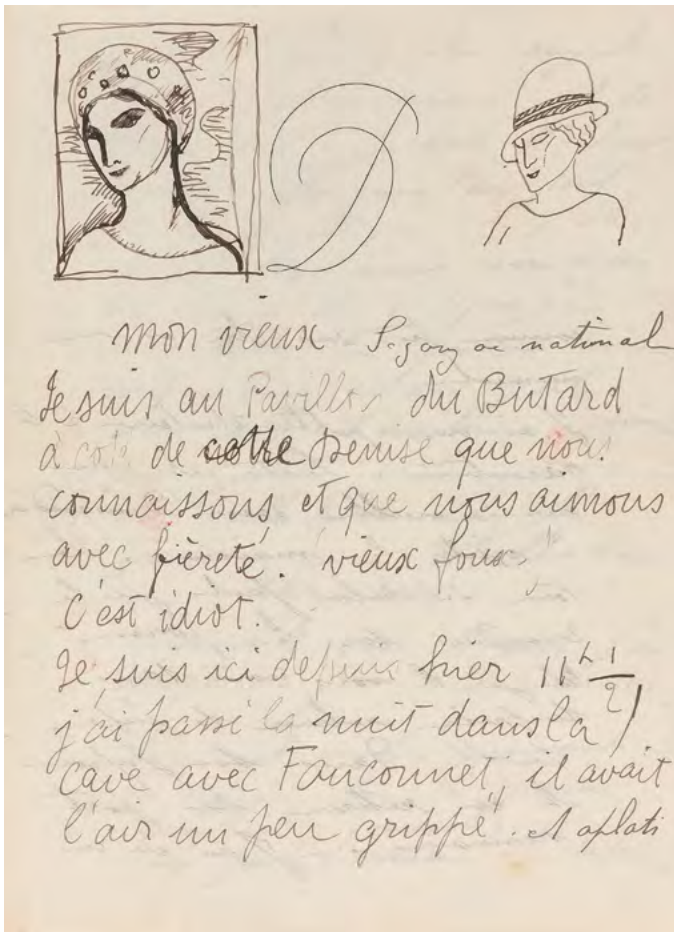 D
mon vieux Segonzac national
Je suis au Pavillon du Butard
à coté de cette Denise que nous
connaissons et que nous aimons
avec fièreté. vieux foux!
C'est idiot.
Je suis ici depuis hier 11h 1/2
j'ai passé la nuit dans la
cave avec Fauconnet, il avait
l'air un peu grippé. et aplati